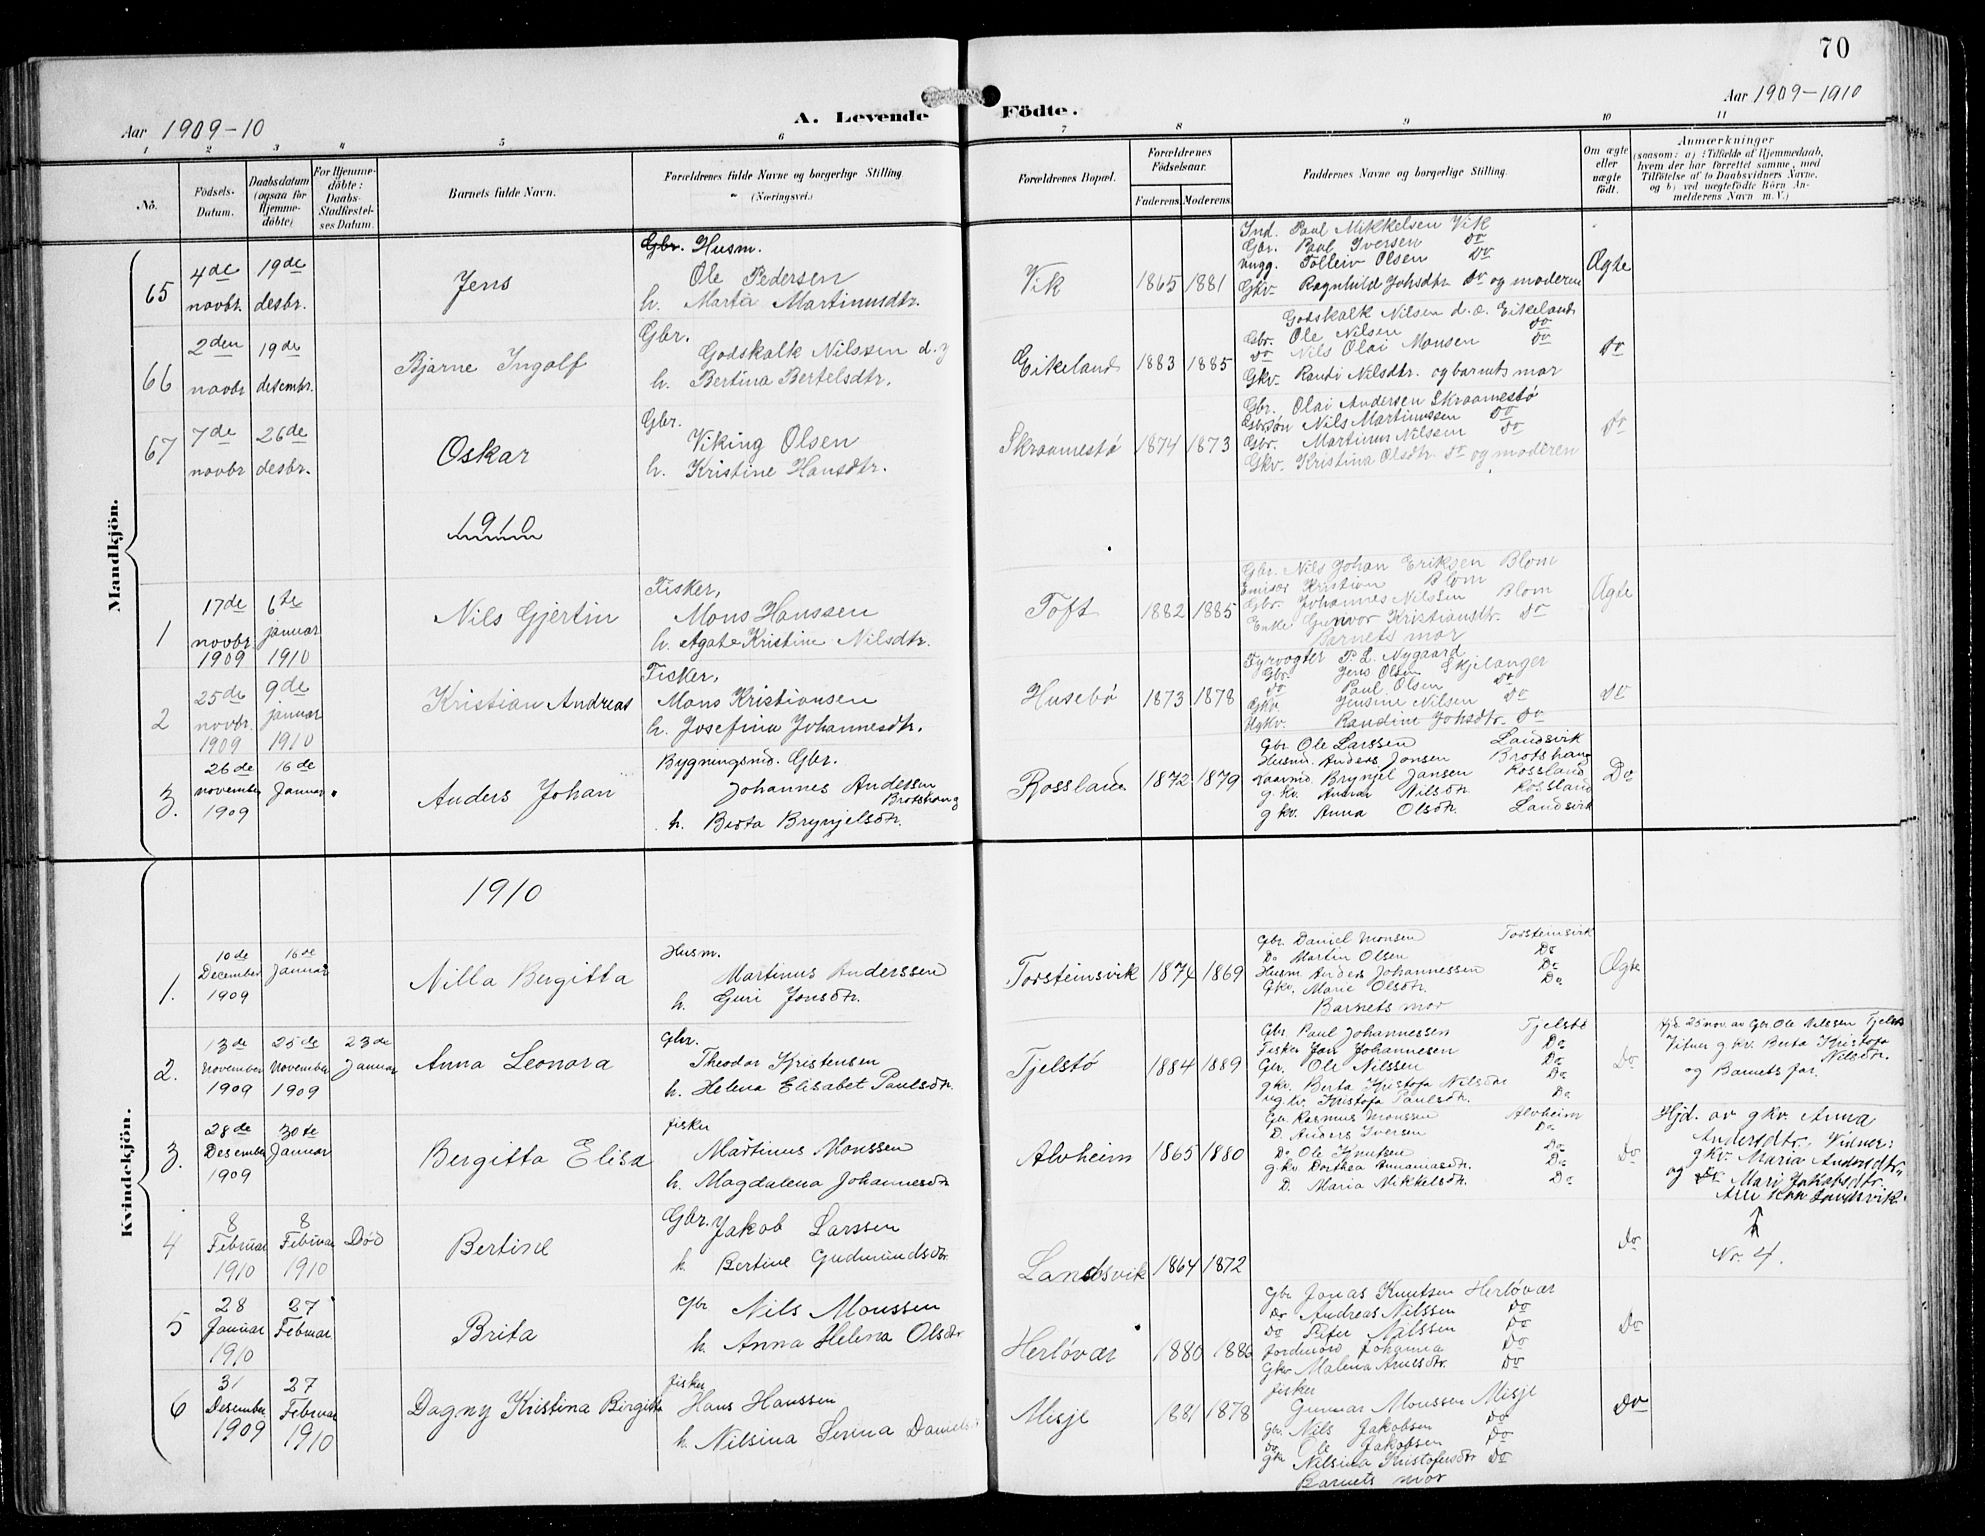 70
Aar 1909-10
A. Levende Födte.
Aar 1909-1910
1 2 3 4 5 6 7 8 9 10 11
No.
Födsels-Datum.
Daabsdatum (ogsaa for Hjemme-döbte)
For Hjemme-döbte: Daabs-Stadfæstel-ses Datum.
Barnets fulde Navn.
Forældrenes fulde Navne og borgerlige Stilling (Næringsvei.)
Forældrenes Bopæl.
Forældrenes Födselsaar.
Faderens. Moderens.
Faddernes Navne og borgerlige Stilling.
Om ægte eller uægte födt.
Anmærkninger
(saasom: a) i Tilfælde af Hjemmedaab, hvem der har forrettet samme, med Tilföielse af to Daabsvidners Navne, og b) ved uægtefödte Börn An-melderens Navn m. V.)
Mandkjön.
65
4de novbr.
19de desbr.
Jens
Gbr. Husm.
Ole Pedersen
h. Marta Martinusdtr.
Vik
1865 1881
Ind. Paul Mikkelsen Vik
Gbr. Paul Iversen do
ungg. Tolleiv Olsen do
Gkv. Ragnhild Johsdtr. do og moderen
Ægte
66
2den novbr
19de desembr.
Bjarne Ingolf
Gbr.
Godskalk Nilssen d.y
h. Bertina Bertelsdtr.
Eikeland
1883 1885
Godskalk Nilsen d.æ. Eikeland
Gbr. Ole Nilsen do
do Nils Olai Monsen do
Gkv. Randi Nilsdtr. og barnets mor
do
67
7de novbr
26de desbr.
Oskar
Gbr.
Viking Olsen
h. Kristine Hansdtr.
Skraamestø
1874 1873
Gbr. Olai Andersen Skraamestø
Gbrsøn Nils Martinussen do
Gbr. Martinus Nilssen do
Gkv. Kristina Olsdtr. do og moderen
do
1910
1
17de novbr. 1909
6te januar 1910
Nils Gjertin
Fisker,
Mons Hanssen
h. Agate Kristine Nilsdtr.
Toft
1882 1885
Gbr. Nils Johan Eriksen Blom
Kristian Blom
Gbr. Johannes Nilssen Blom
Enke Gunvor Kristiansdtr. do
Barnets mor
Ægte
2
25de novbr. 1909
9de januar 1910
Kristian Andreas
Fisker,
Mons Kristiansen
h. Josefina Johannesdtr.
Husebø
1873 1878
Fyrvogter P. L. Nygaard
Gbr. Jens Olsen Skjelanger
do Paul Olsen do
Gkv. Jensine Nilsen do
Ugkv. Randine Johsdtr. do
do
3.
26de november 1909
16de Januar
Anders Johan
Bygningsmd. Gbr.
Johannes Anderssen Brotshaug
h. Berta Brynjelsdtr.
Rossland
1872 1879
Gbr Ole Larssen Landsvik
Husmd. Anders Jonsen Brotshaug
Brynjel Jansen Rossland
g. kv. Anna Nilsdtr. Rossland
g kv. Anna Olsdtr. Landsvik
Do
Kvindekjön.
1910
1.
10de December 1909
16de Januar
Nilla Bergitta
Husm.
Martinus Anderssen
h. Guri Jonsdtr.
Torsteinsvik
1874 1869
Gbr. Daniel Monsen Torsteinsvik
Do Martin Olsen Do
Husm. Anders Johannessen Do
Gkv. Marie Olsdtr. Do
Barnets mor
Ægte
2.
13de November 1909
25de November 1909
23de Januar
Anna Leonora
Gbr.
Theodor Kristensen
h. Helena Elisabet Paulsdtr.
Tjelstø
1884 1889
Gbr Paul Johannessen Tjelstø
Fisker Jon Johannesen Do
Gbr. Ole Nilssen Do
gkv. Berta Kristofa Nilsdtr Do
ug. kv. Kristofa Paulsdtr. Do
Do
Hjd. 25 nov. av Gbr. Ole Nilssen Tjelstø
Vitner g kv. Berta Kristofa Nilsdtr.
og Barnets far.
3.
28de Desember 1909
30te Januar
Bergitta Elisa
fisker
Martinus Monssen
h. Magdalena Johannesdtr
Alvheim
1865 1880
Gbr Rasmus Monssen Alvheim
D. Anders Iversen Do
Do Ole Knutsen Do
g kv Dorthea Annaniasdtr. Do
D. Maria Mikkelsdtr. Do
Do
Hjd. av gkv Anna
Andersdtr. Vidner:
gkv. Maria Andersdtr.
og do Mari Jakobsdtr.
↑
Nr. 4.
4
8 Februar 1910
8 Februar 1910
Død
Bertine
Gbr. Jakob Larssen
h. Bertine Gudmundsdtr.
Landsvik
1864 1872
do
5
28 Januar 1910
27 Februar
Brita
Gbr Nils Monssen
h. Anna Helena Olsdtr
Herløvær
1880 1886
Gbr Jonas Knutsen Herløvær
Do Andreas Nilssen Do
Do Peter Nilssen Do
Jordmord Johanna Do
Gkv Malena Arnesdtr. Do
Do
6
31 Desember 1909
27 Februar 1910
Dagny Kristina Birgitta
fisker
Hans Hanssen
h. Nilsina Serina Daniels
Misje
1881 1878
fisker
Gunnar Monssen Misje
Gbr. Nils Jakobsen Do
Do Ole Jakobsen Do
Gkv Nilsina Kristofersdtr Do
Barnets mor
Do